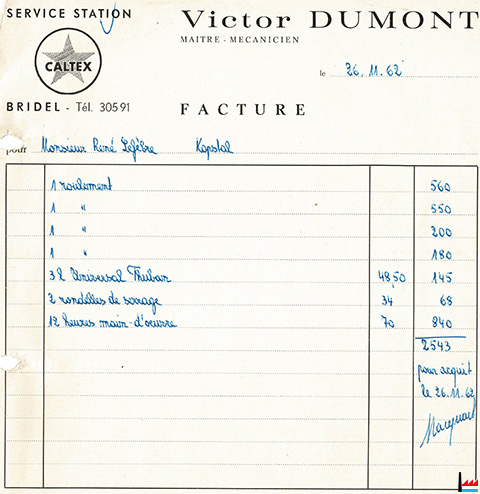 SERVICE STATION
Victor DUMONT
MAITRE - MECANICIEN
CALTEX
le 26.11.62
BRIDEL - Tél. 30591
FACTURE
pour Monsieur René Lefèbre Kopstal
1 roulement 560
1 " 550
1 " 200
1 " 180
3 l Universal Thuban 48 50 145
2 rondelles de serrage 34 68
12 heures main-d'oeuvre 70 840
2543
pour acquit
le 26.11.62